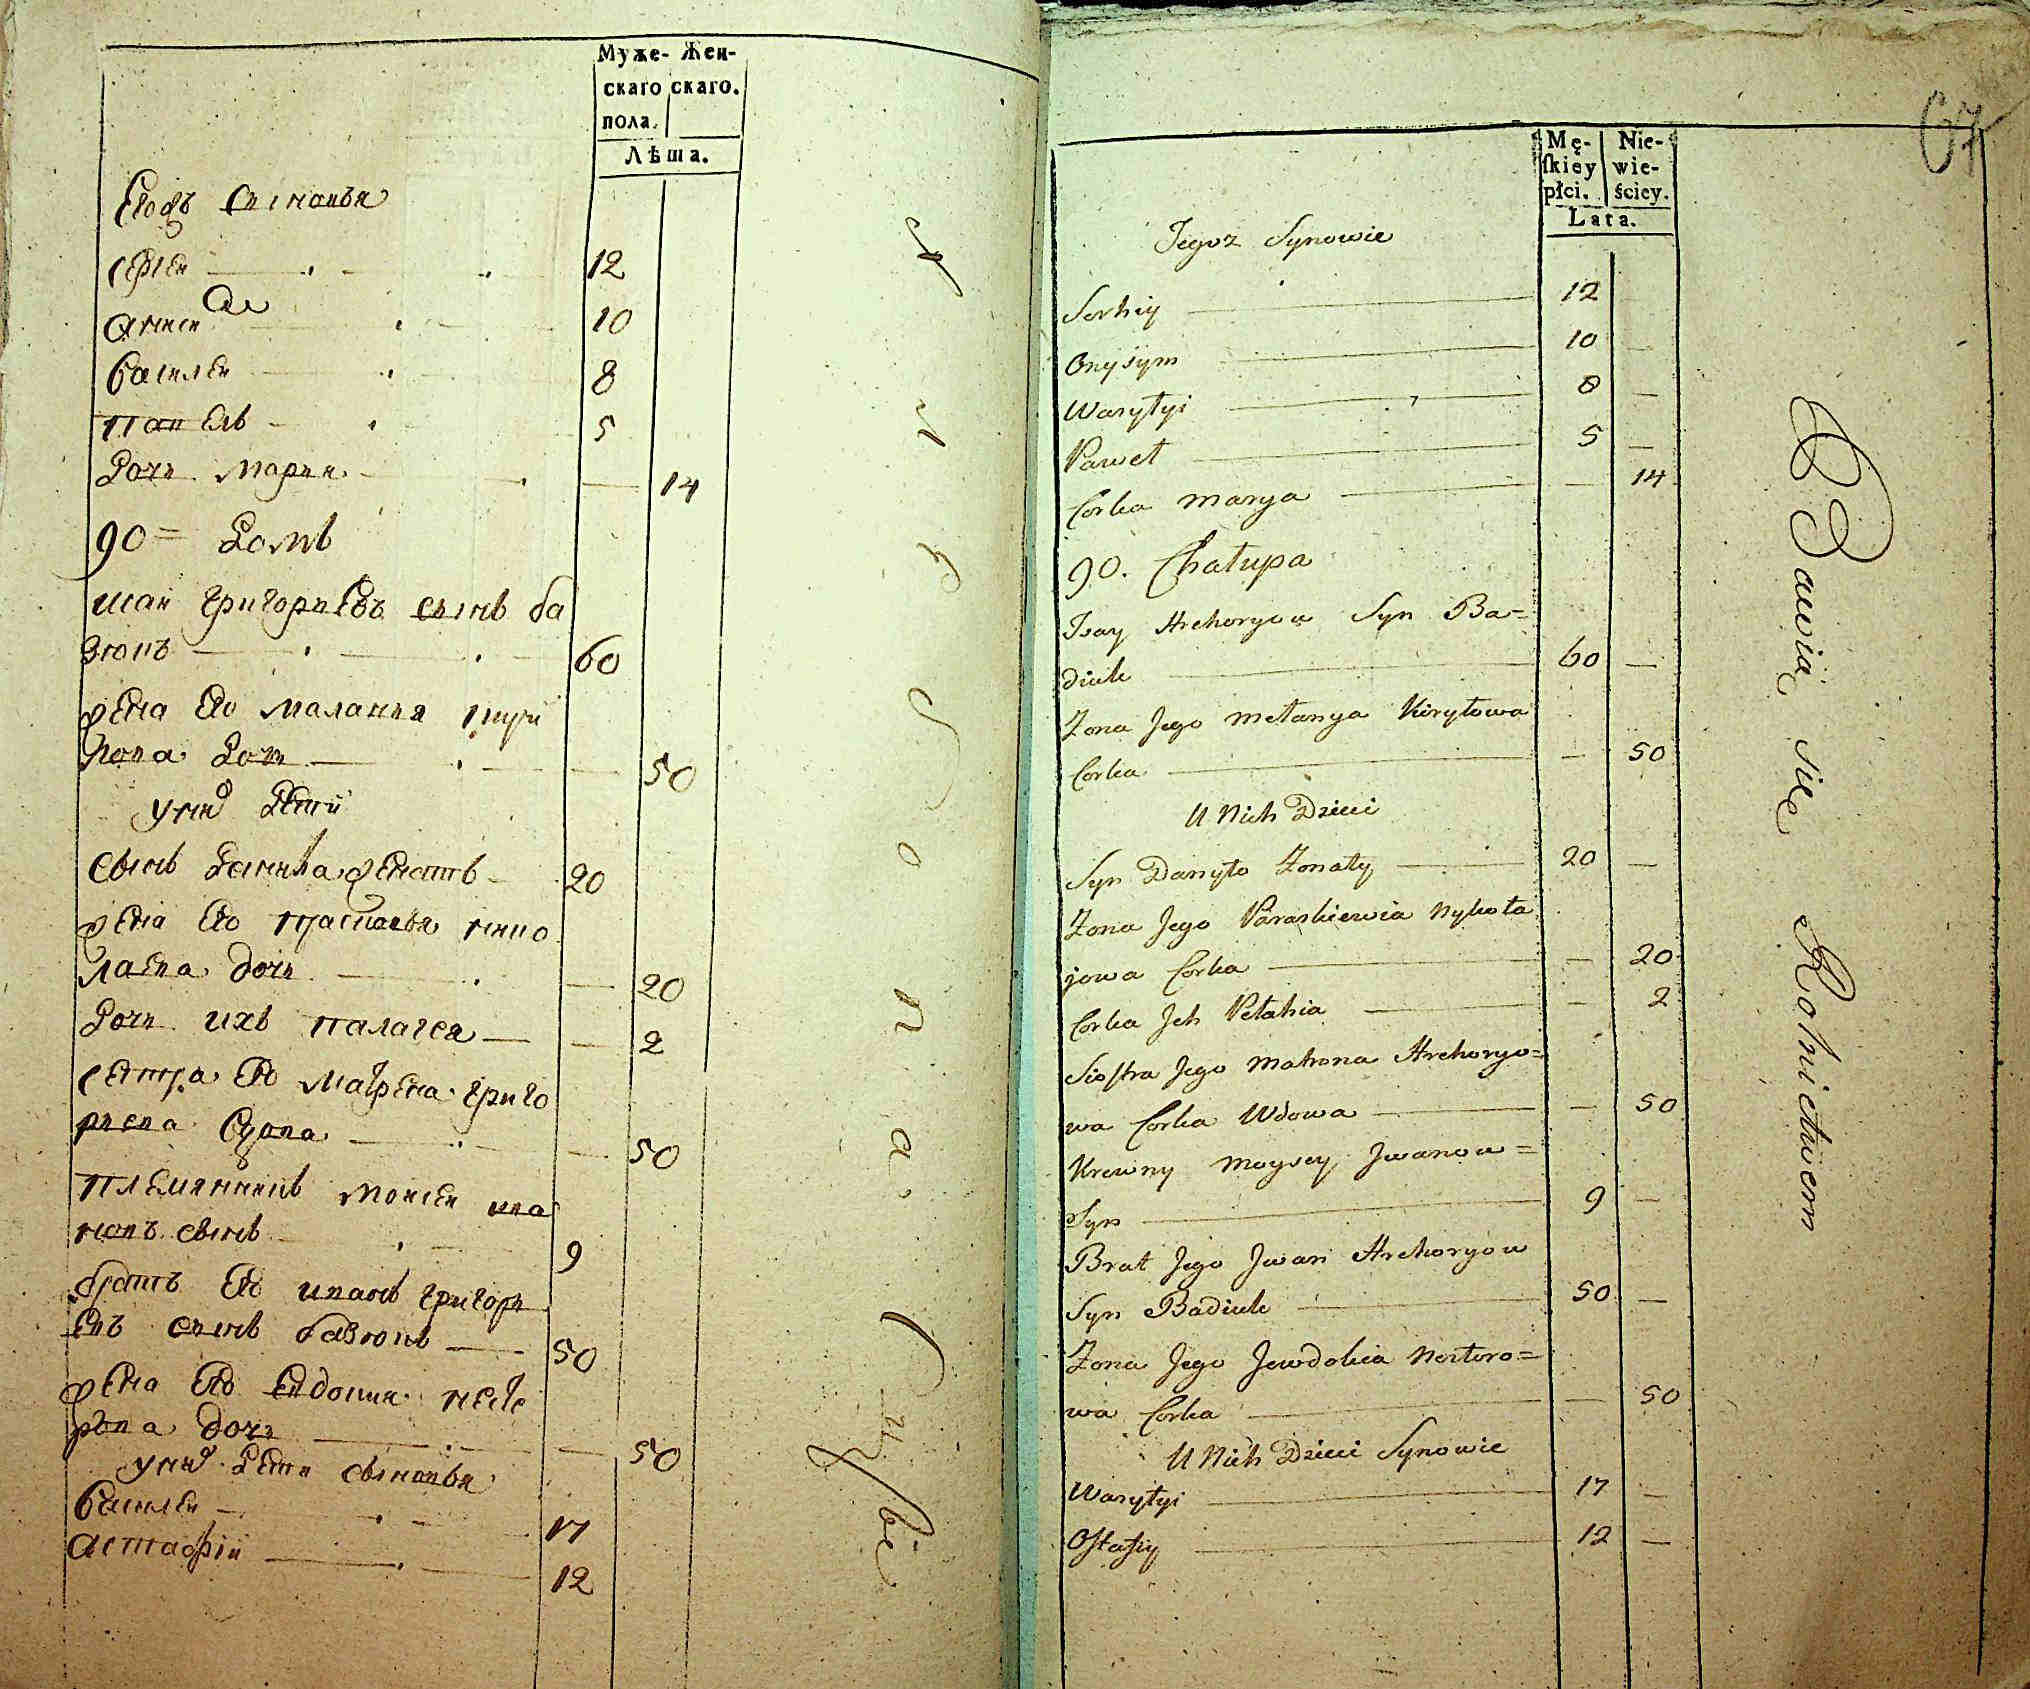 Муже- Жен-
скаго скаго.
пола.
Лѣта.
Егожъ сыновья
Сергей 12
Анисим 10
Василей 8
Павелъ 5
Дочь Мария 14
90 = Домъ
Исай Григорьевъ сынъ Ба
зюкъ 60
Жена Его Малания
лова дочь 50
У них дети
Сынъ Данила женатъ 20
Жена Его Прасковья Нико
лаева дочь 20
Дочь ихъ Палагея 2
Сестра Его Матрена Григо
риева вдова 50
Племянникъ Моисей Ива
новъ сынъ 9
Братъ Его Иванъ Григорь
евъ сынъ Базюкъ 50
Жена Его Евдокия Несте
рова дочь 50
У них дети сыновья
Василей 17
Астафiй 12
67
Mę- Nie-
ſkiey wie-
płci. ściey.
Lata.
Jegoż Synowie
Serhiy 12
Onysym 10
Wasyłyi 8
Paweł 5
Corka Marya 14
90. Chałupa
Isay Hrehoryow Syn Ba=
diuk 60
Zona Jego Mełanya Kiryłowa
Corka 50
U Nich Dzieci
Syn Danyło Zonaty 20
Zona Jego Paraskiewia Nykoła
jowa Corka 20
Corka Jch Pełahia 2
Siostra Jego Matrona Hrehoryo=
wa Corka Wdowa 50
Krewny Moysey Jwanow=
Syn 9
Brat Jego Jwan Hrehoryow
Syn Badiuk 50
Zona Jego Jewdokia Nestoro=
wa Corka 50
U Nich Dzieci Synowie
Wasyłyi 17
Ostafiy 12
Bawią się Rolnictwem